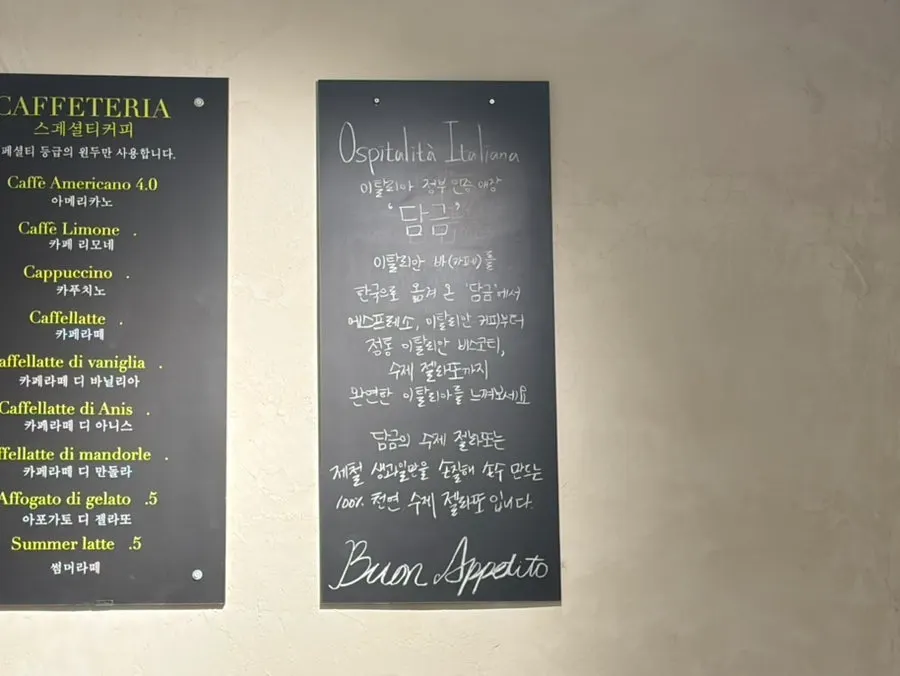 CAFFETERIA
스페셜티커피
페셜티 등급의 원두만 사용합니다.
Caffè Americano 4.0
아메리카노
Caffè Limone .
카페 리모네
Cappuccino .
카푸치노
Caffellatte .
카페라떼
affellatte di vaniglia .
카페라떼 디 바닐리아
Caffellatte di Anis .
카페라떼 디 아니스
ffellatte di mandorle .
카페라떼 디 만돌라
Affogato di gelato .5
아포가토 디 젤라또
Summer latte .5
썸머라떼
Ospitalità Italiana
이탈리아 정부 인증 매장
'담금'
이탈리안 바(카페)를
한국으로 옮겨 온 '담금'에서
에스프레소, 이탈리안 커피부터
정통 이탈리안 비스코티,
수제 젤라또까지
완연한 이탈리아를 느껴보세요
담금의 수제 젤라또는
제철 생과일만을 손질해 손수 만드는
100% 천연 수제 젤라또 입니다.
Buon Appetito